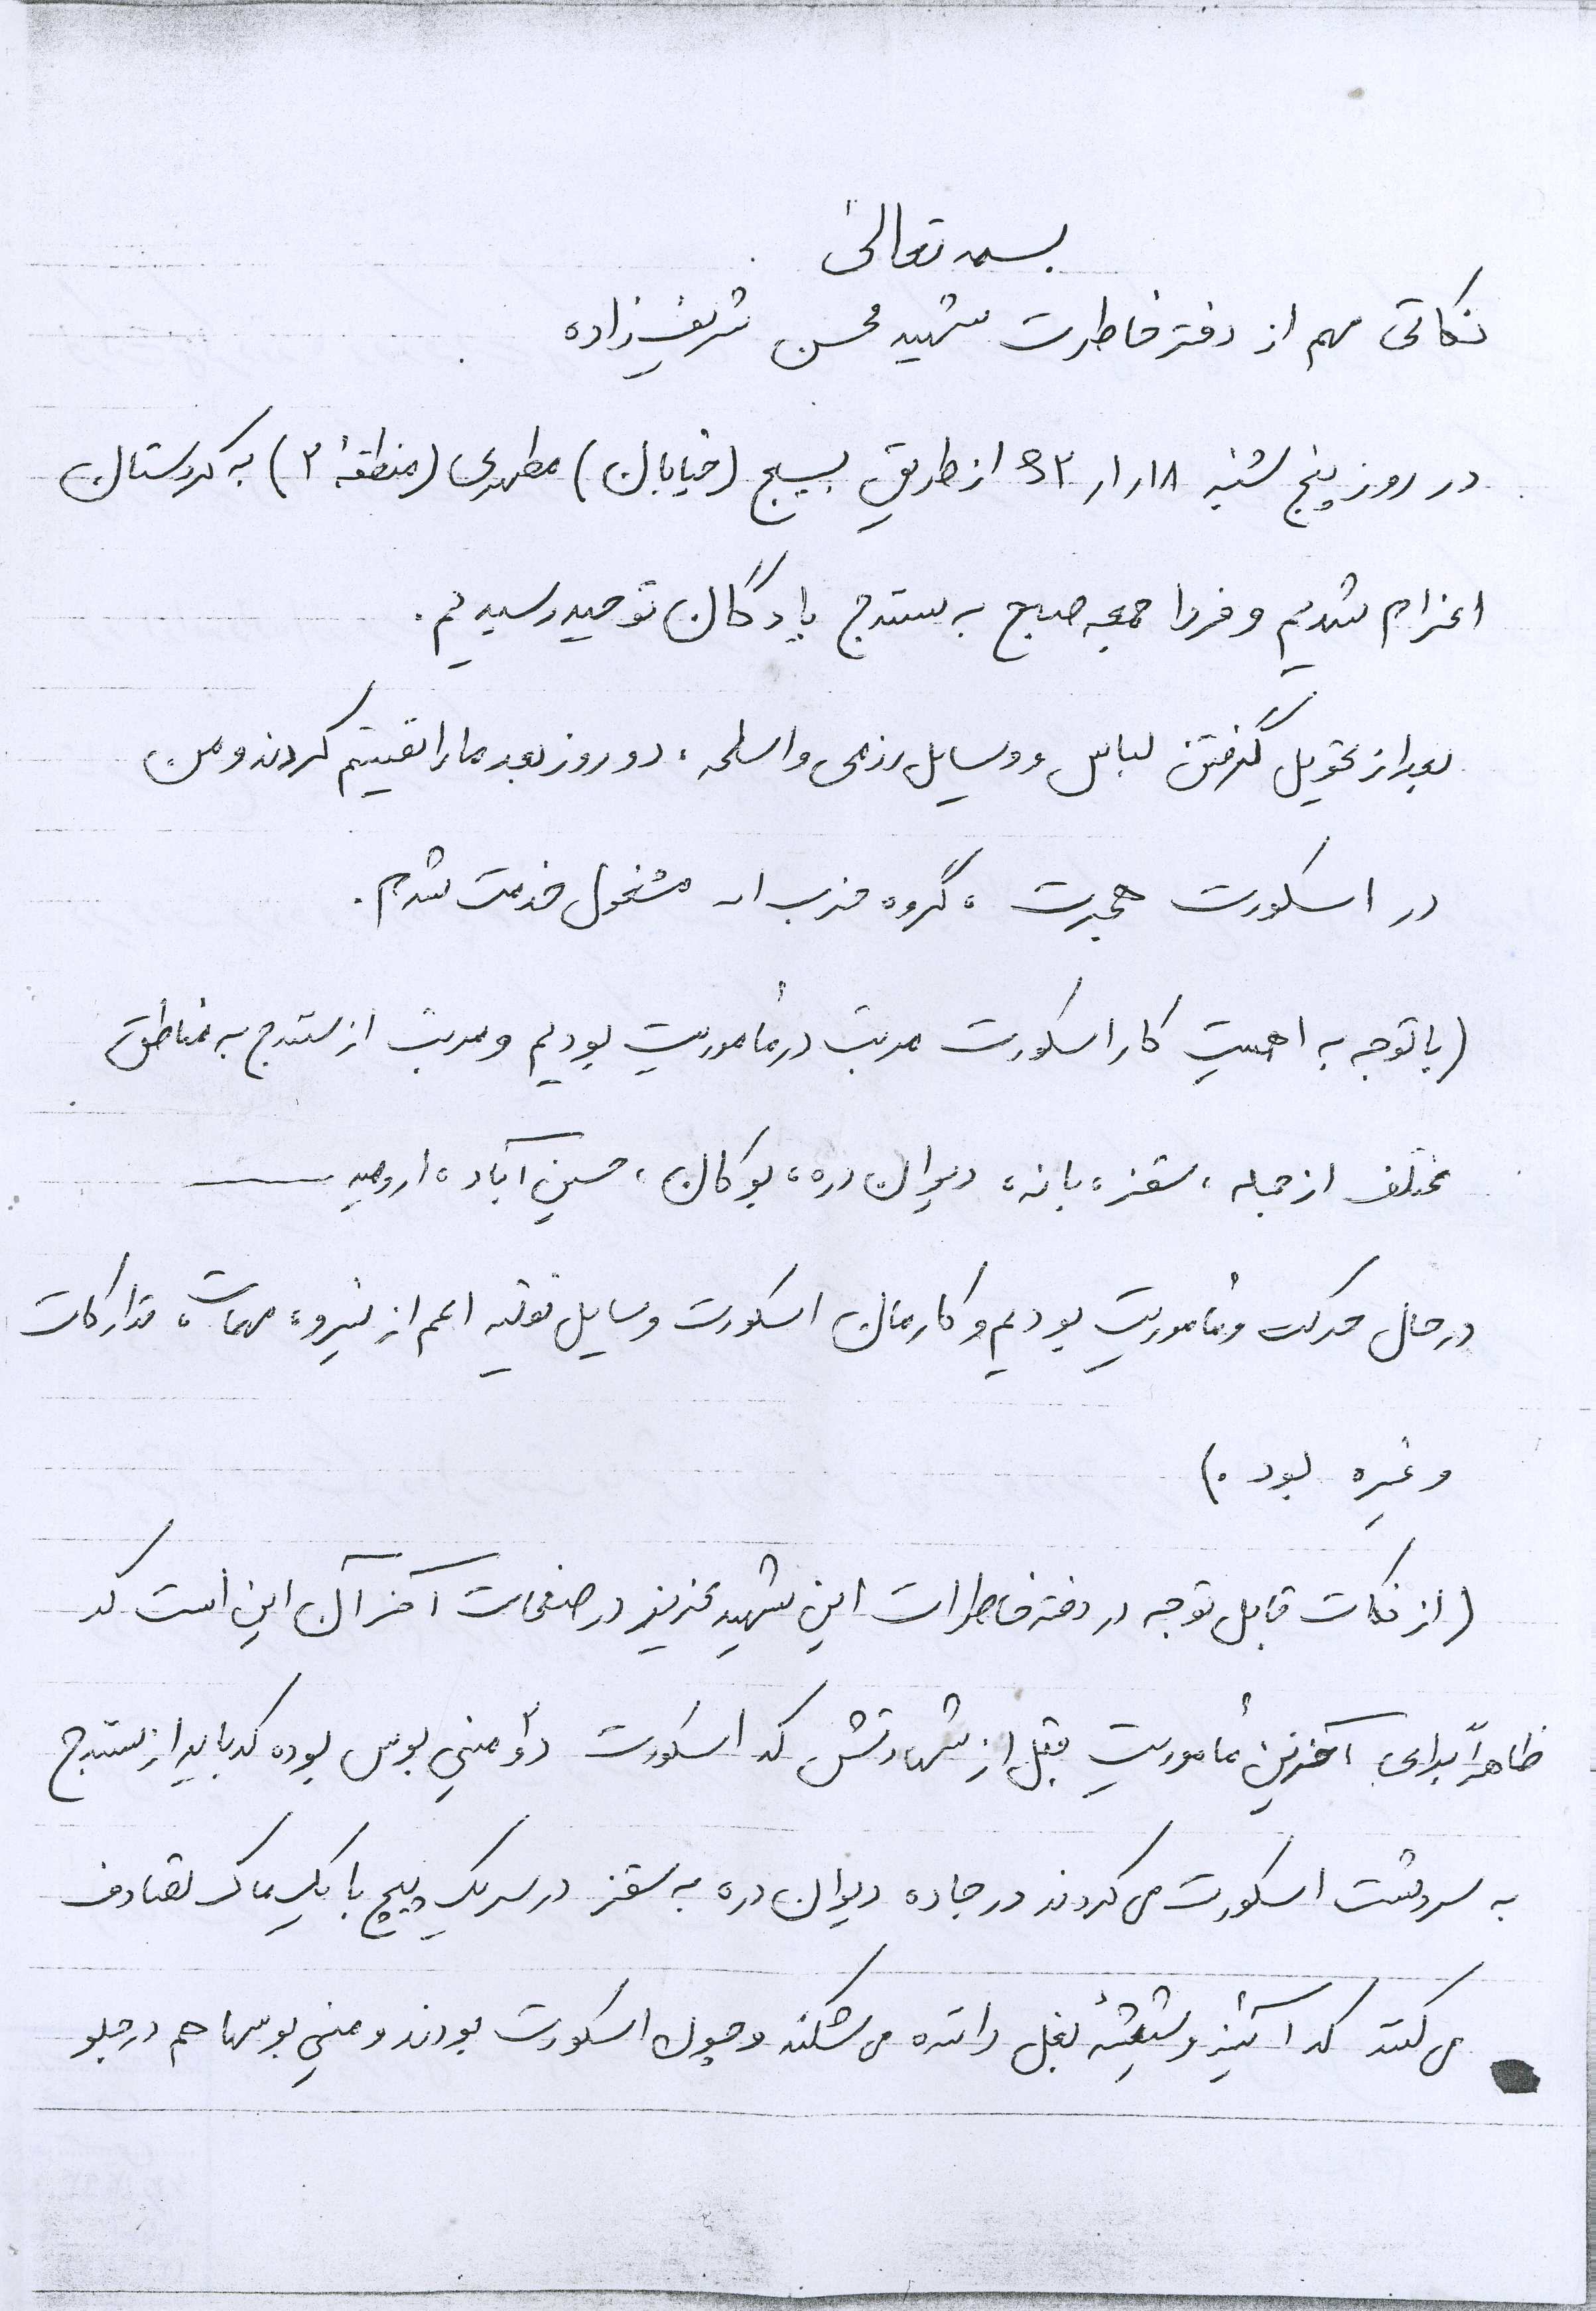 بسمه تعالی
نکاتی مهم از دفتر خاطرت شهید محسن شریف زاده
در روز پنج شنبه ۱۸ر۱ر۶۲ از طریق بسیج (خیابان) مطهری (منطقهٔ ۳) به کردستان
اعزام شدیم و فردا جمعه صبح به سنندج پادگان توحید رسیدیم.
بعد از تحویل گرفتن لباس و وسایل رزمی و اسلحه، دو روز بعد ما را تقسیم کردند و من
در اسکورت هجرت، گروه ضربت مشغول خدمت شدم.
(با توجه به اهمیت کار اسکورت مرتب در مأموریت بودیم و مرتب از سنندج به مناطق
مختلف از جمله، سقز، بانه، دیوان دره، بوکان، حسین آباد، ارومیه
در حال حرکت و مأموریت بودیم و کارمان اسکورت وسایل نقلیه اعم از نیرو، مهمات، تدارکات
و غیره بود.)
(از نکات قابل توجه در دفتر خاطرات این شهید عزیز در صفحات آخر آن این است که
ظاهراً برای آخرین مأموریت قبل از شهادتش که اسکورت دو مینی بوس بوده که باید از سنندج
به سردشت اسکورت می کردند در جاده دیوان دره به سقز در سر یک پیچ با یک ماک تصادف
می کنند که آئینه و شیشهٔ بغل راننده می شکند و چون اسکورت بودند و مینی بوسها هم در جلو